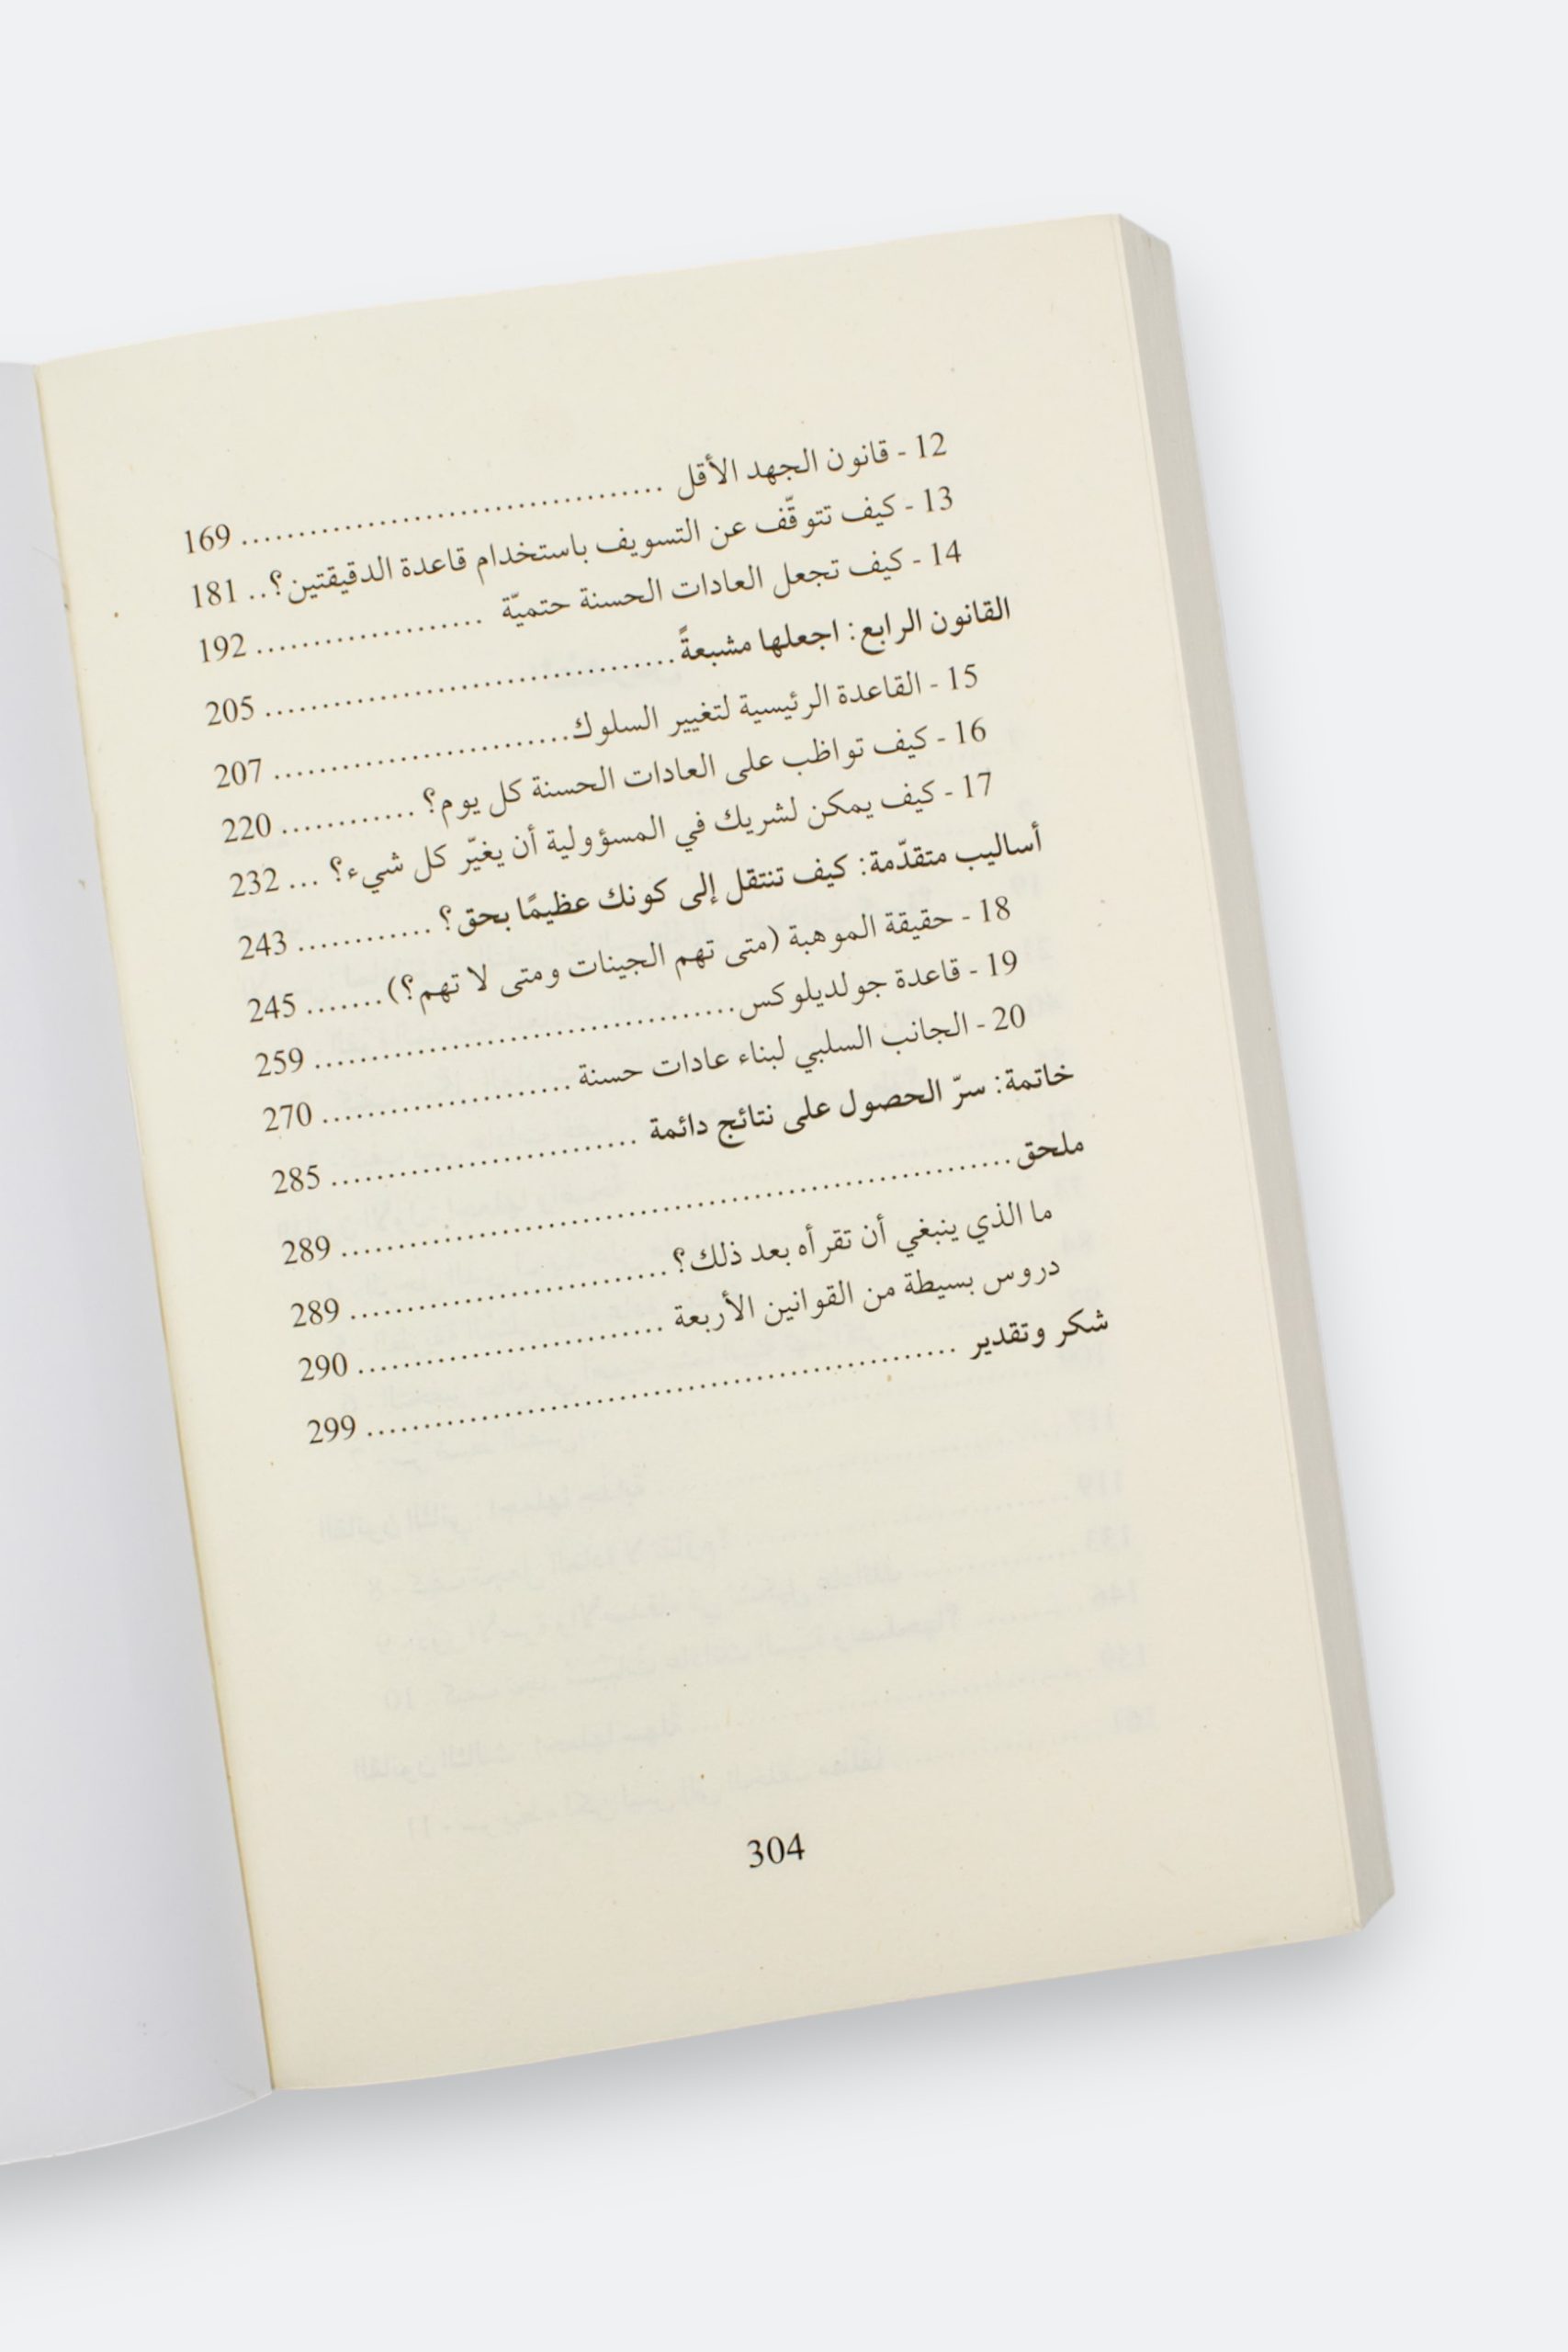 12 - قانون الجهد الأقل ..................................... 169
13 - كيف تتوقّف عن التسويف باستخدام قاعدة الدقيقتين؟.. 181
14 - كيف تجعل العادات الحسنة حتميّة .................... 192
القانون الرابع: اجعلها مشبعةً.................................... 205
15 - القاعدة الرئيسية لتغيير السلوك.......................... 207
16 - كيف تواظب على العادات الحسنة كل يوم؟ ............ 220
17 - كيف يمكن لشريك في المسؤولية أن يغيّر كل شيء؟ ... 232
أساليب متقدّمة: كيف تنتقل إلى كونك عظيمًا بحق؟ ............ 243
18 - حقيقة الموهبة (متى تهم الجينات ومتى لا تهم؟)....... 245
19 - قاعدة جولديلوكس..................................... 259
20 - الجانب السلبي لبناء عادات حسنة ...................... 270
خاتمة: سرّ الحصول على نتائج دائمة ........................... 285
ملحق........................................................... 289
ما الذي ينبغي أن تقرأه بعد ذلك؟............................ 289
دروس بسيطة من القوانين الأربعة ........................... 290
شكر وتقدير .................................................... 299
304